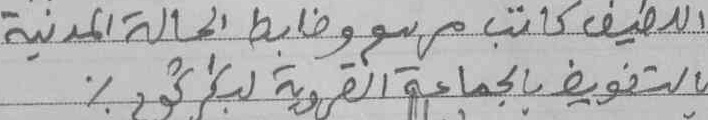 اللطيف كاتب مرسم وضابط الحالة المدنية
بالتفويض بالجماعة القروية لبكركور ./.